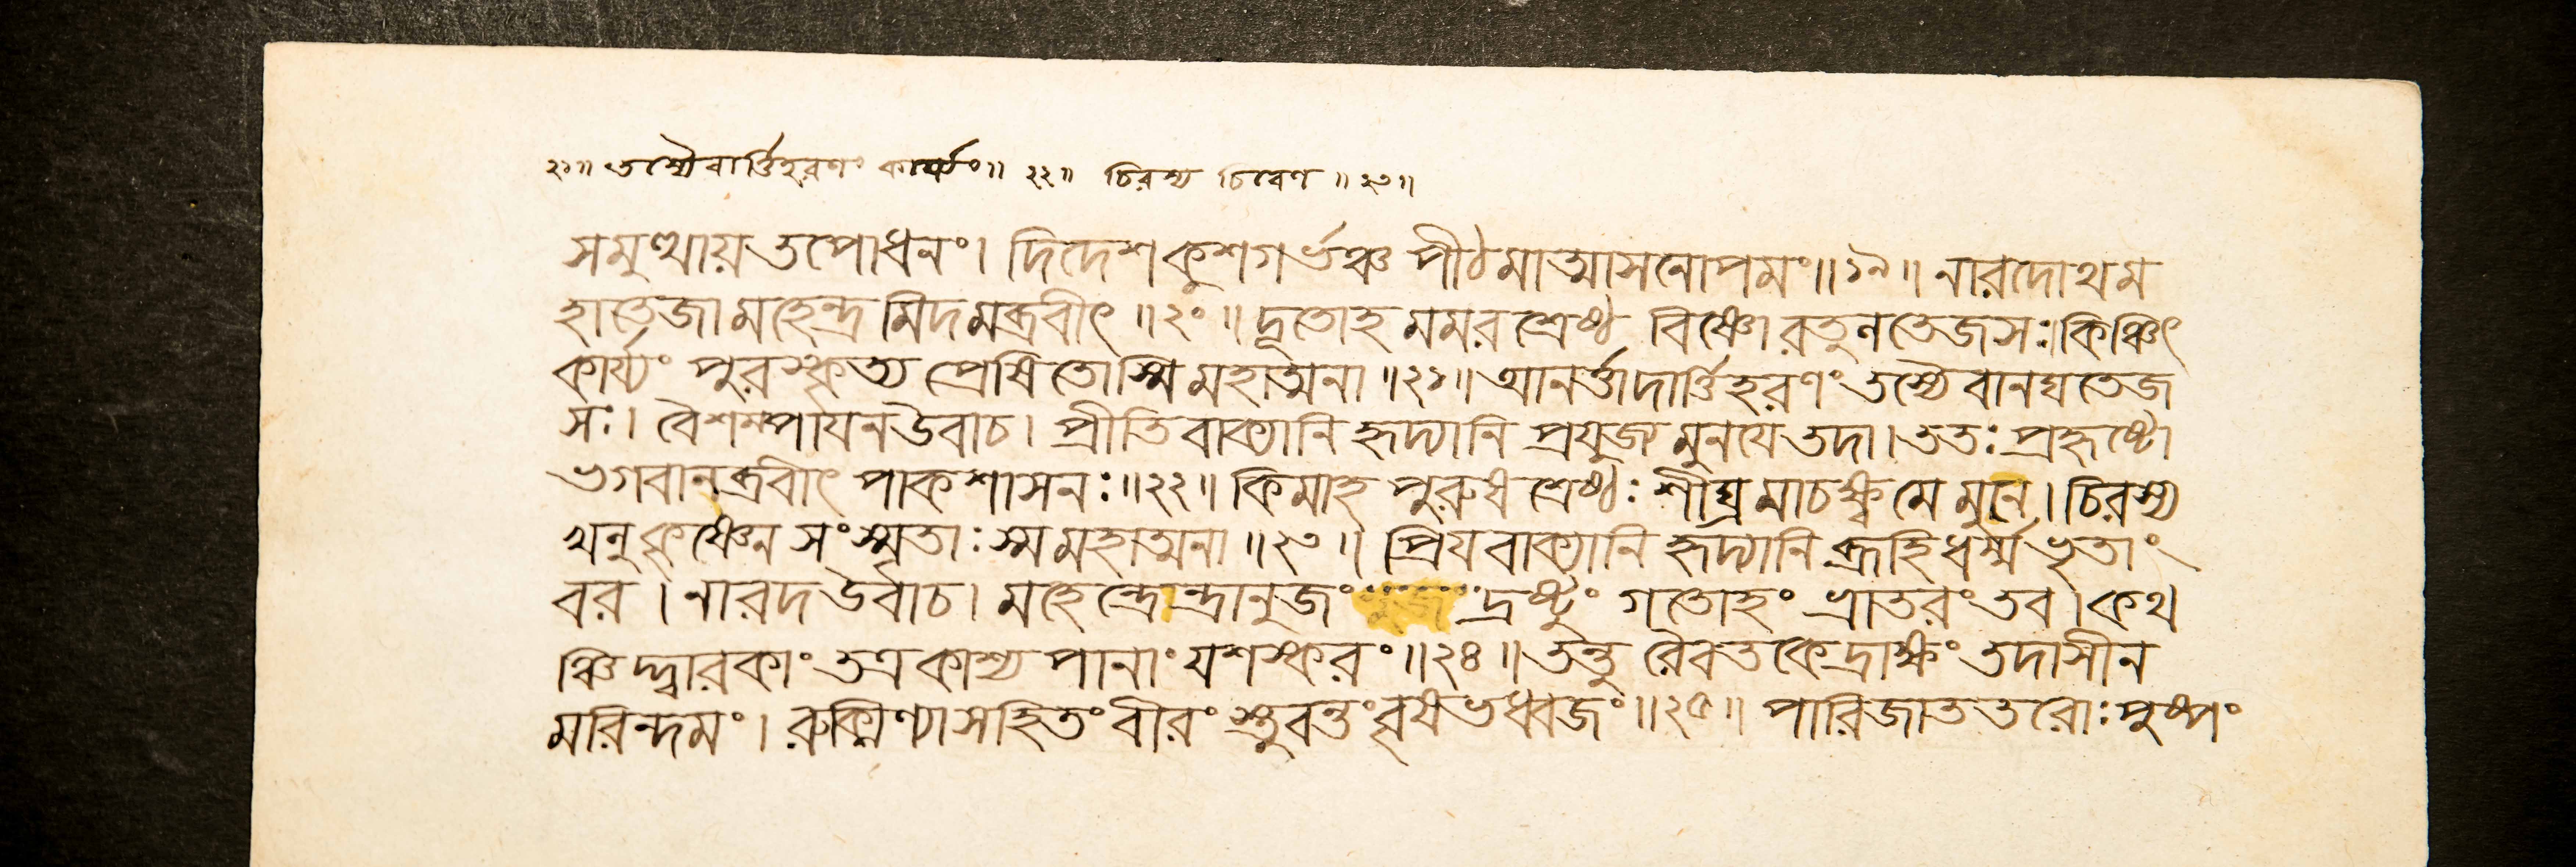 ২১॥ তস্যৈবার্ত্তিহরণং কার্য্যং॥ ২২॥ চিরস্য চিরেণ ॥ ২৩॥
সমুত্থায় তপোধনং। দিদেশ কুশগর্ভঞ্চ পীঠমাত্মাসনোপমং॥১৯॥ নারদোথম
হাতেজা মহেন্দ্রমিদমব্রবীৎ ॥২০॥ দূতোহমমরশ্রেষ্ঠ বিষ্ণোরতুনতেজসঃ।কিঞ্চিৎ
কার্য্যং পুরস্কৃত্য প্রেষিতোস্মি মহাত্মনা ॥২১॥ আনর্ত্তাদার্ত্তিহরণং তস্যৈবানঘতেজ
সঃ। বৈশম্পাযন উবাচ। প্রীতিবাক্যানি হৃদ্যানি প্রযুজ্য মুনযে তদা। ততঃ প্রহৃষ্টো
ভগবানব্রবীৎ পাকশাসনঃ॥২২॥ কিমাহ পুরুষশ্রেষ্ঠঃ শীঘ্রমাচক্ষ্ব মে মুনে। চিরস্য
খনু কৃষ্ণেন সংস্মৃতাঃ স্ম মহাত্মনা ॥২৩॥ প্রিযবাক্যানি হৃদ্যানি ব্রূহি ধর্ম্মভৃতাং
বর। নারদ উবাচ। মহেন্দ্রেন্দ্রানুজং দ্রষ্টুং গতোহং ভ্রাতরং তব। কথ
ঞ্চিদ্দ্বারকাং তত্র কাশ্যপানাং যশস্করং॥২৪॥ তন্তু রৈবতকেদ্রাক্ষং তদাসীন
মরিন্দমং। রুক্মিণ্যা সহিতং বীরং স্তুবন্তং বৃষভধ্বজং॥২৫॥ পারিজাততরোঃ পুষ্পং